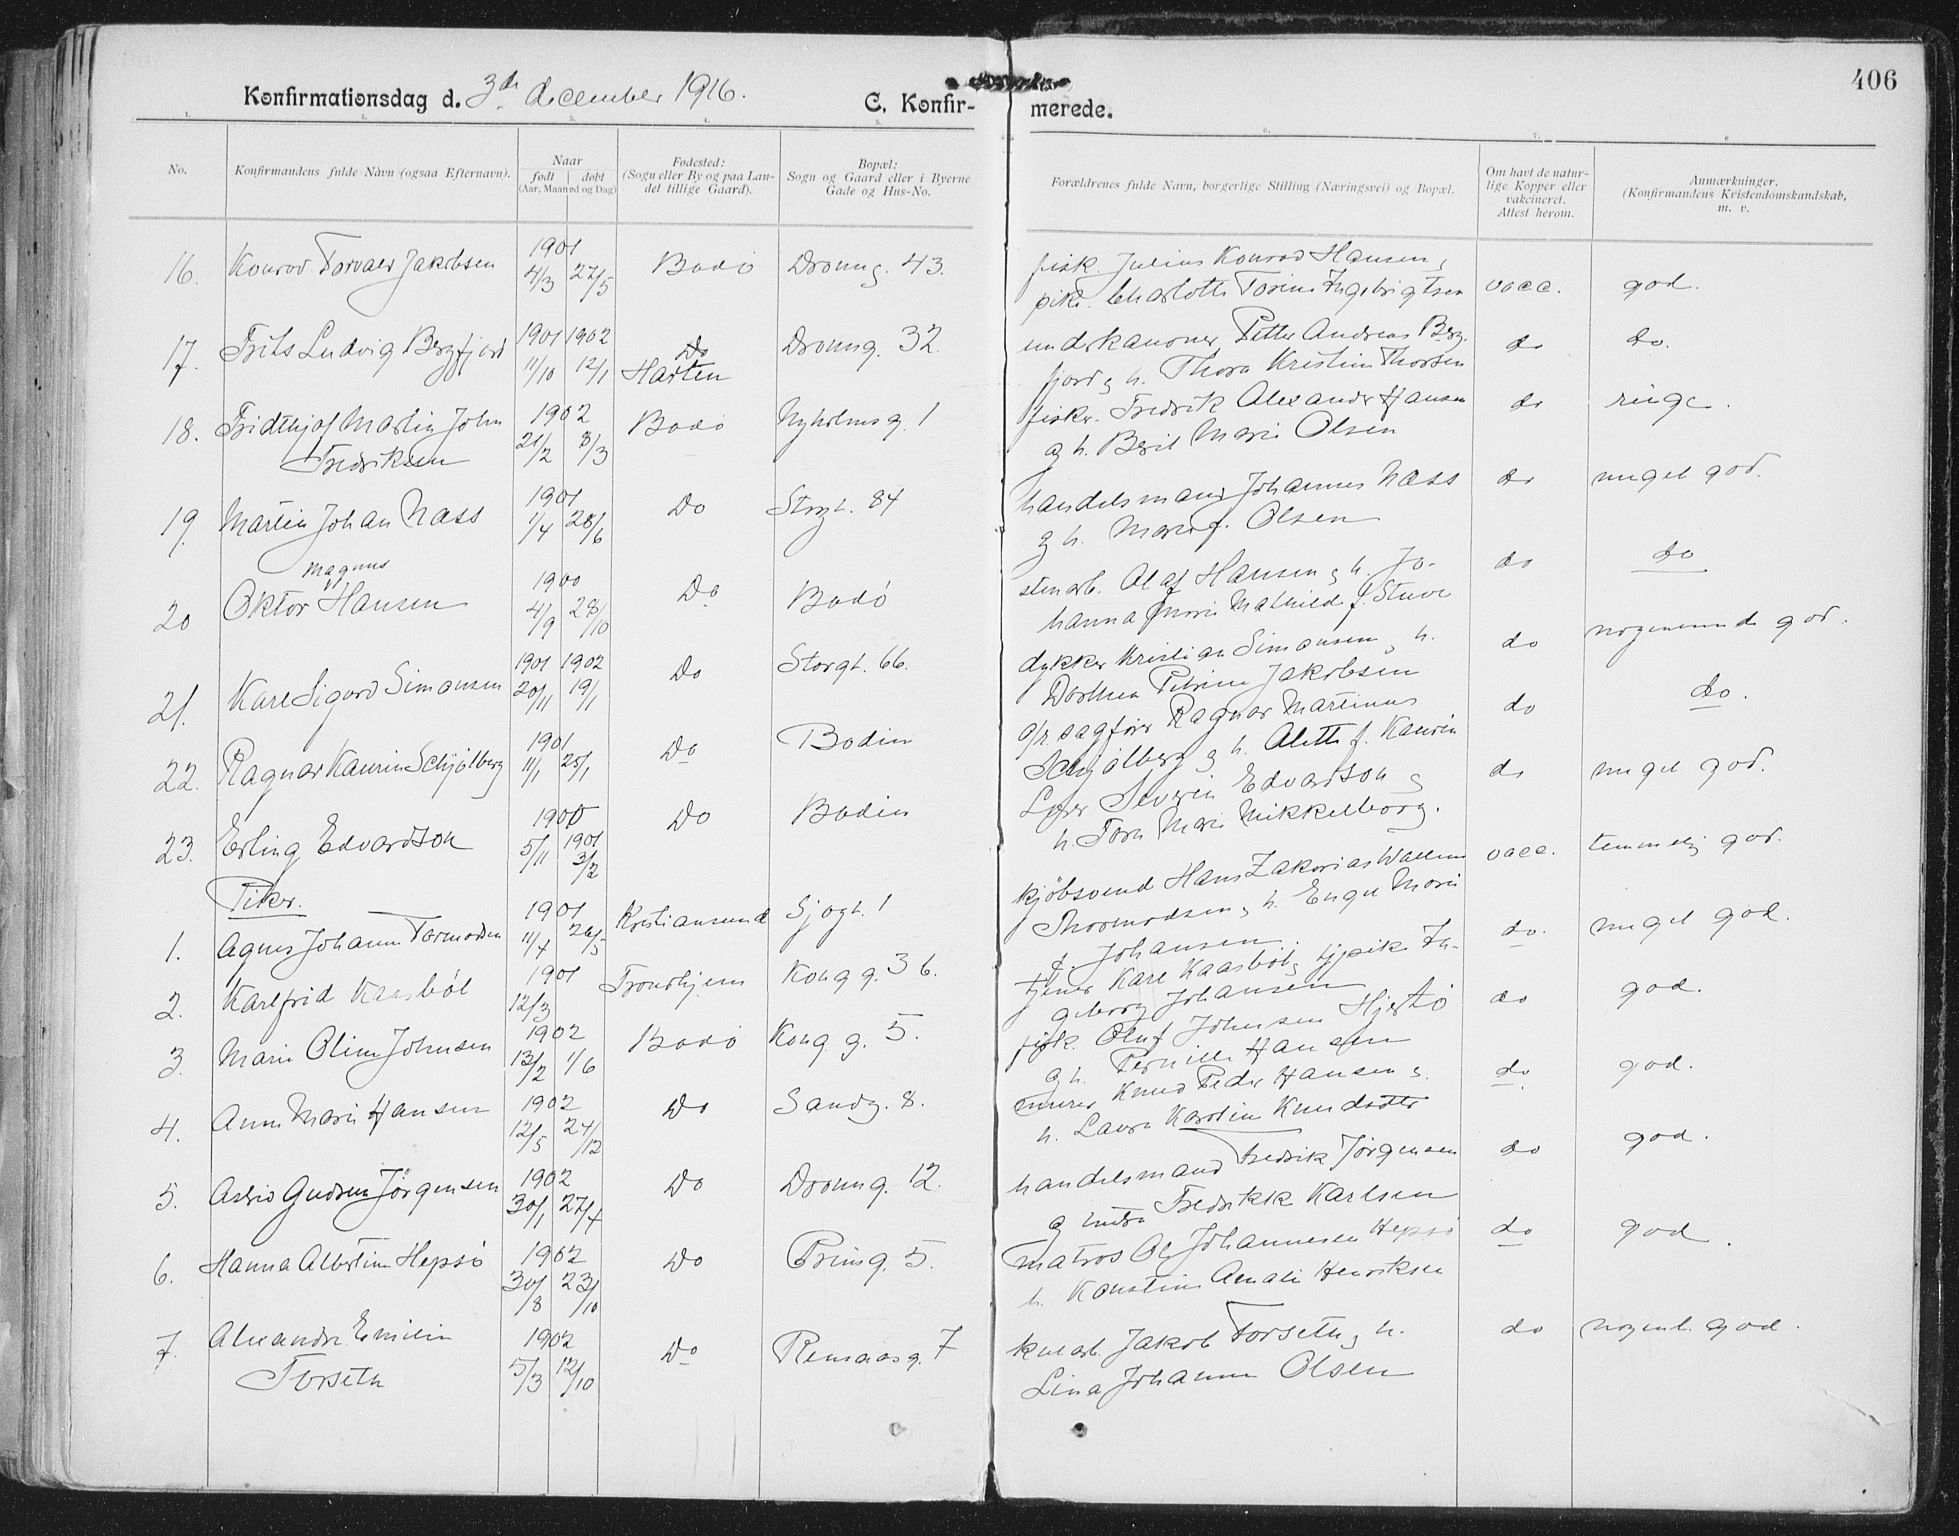 406
Konfirmationsdag d. 3de december 1916. C. Konfirmerede.
1. 2. 3. 4. 5. 6. 7. 8.
No.
Konfirmandens fulde Navn (ogsaa Efternavn).
Naar
født | døbt
(Aar, Maaned og Dag)
Fødested:
(Sogn eller By og paa Lan-
det tillige Gaard).
Bopæl:
Sogn og Gaard eller i Byerne
Gade og Hus-No.
Forældrenes fulde Navn, borgerlige Stilling (Næringsvei) og Bopæl.
Om havt de natur-
lige Kopper eller
vakcineret.
Attest herom.
Anmærkninger.
(Konfirmandens Kristendomskundskab,
m. v.
16. Konrad Torvald Jakobsen 1901 4/3 27/5 Bodø Dronng. 43. fisk. Julius Konrad Hansen g
pike Charlotte Torine Ingebrigtsen vacc. god.
17. Frits Ludvig Bergfjord 1901 11/10 1902 12/1 Do Dronng. 32. underkanoner Petter Andreas Berg-
fjord g h. Thora Kristine Thorsen do do.
18. Fridthjof Martin John
Fredriksen 1902 21/2 8/3 Bodø Nyholmsg. 1 fisker. Fredrik Alexander Hansen
g h. Berit Marie Olsen do ringe.
19. Martin Johan Nass 1901 1/4 28/6 Do Storgt. 84 handelsmand Johannes Nass
g h. Marie f. Olsen do meget god.
20 Oktor Magnus Hansen 1900 4/9 28/10 Do Bodø stenarb. Olaf Hansen g h. Jo-
hanna Marie Mathilde f. Stuve do do
21. Karl Sigurd Simonsen 1901 20/11 1902 19/1 Do Storgt. 66. dykker Kristian Simonsen g h.
Dorthea Petrine Jakobsen do nogenlunde god.
22. Ragnar Kaurin Schjølberg 1901 11/1 25/1 Do Bodin o/r sagfører Ragnar Martinus
Schjølberg g h. Aleth f. Kaurin do do.
23. Erling Edvardson 1900 5/11 1901 3/2 Do Bodin Severin Edvardson g
h. Marie Mikkelborg. do meget god.
Piker.
1. Agnes Johanne Tormodsen 1901 11/4 26/5 Kristiansund Sjøgt. 1 kjøbsvend Hans Zakarias
Thormodsen g h. Engel Marie
f. Johansen vacc. temmelig god.
2. Karlfrid Kaasbøl 1901 12/3 Trondhjem Kong g. 36. tjener Karl Kaasbøl g tjpike In-
geborg Johansen do. meget god.
3. Marie Oline Johnsen 1902 13/2 1/6 Bodø Kong. g. 5. fisk. Oluf Johnsen Hjertø
g h. Pernille Hansen do god.
4. Anne Marie Hansen 1902 12/5 27/12 Do Sandg. 8. murer Knud Peder Hansen g
h. Laura Karoline Knudsdtr do god.
5. Astrid Gudrun Jörgensen 1902 30/1 27/4 Do Dronng. 12. handelsmand Fredrik Jørgensen
g hustru Fredrikke Karlsen do god.
6. Hanna Albertine Hepsø 1902 30/8 23/10 Do Prinsg. 5. matros Ole Johannesen Hepsø
h. Konstine Amalie Henriksen do god.
7. Alexandra Emilie
Forseth 1902 5/3 12/10 Do Rensaasg. 7 Jakob Forseth g h.
Lina Johanne Olsen do nogenl. god.